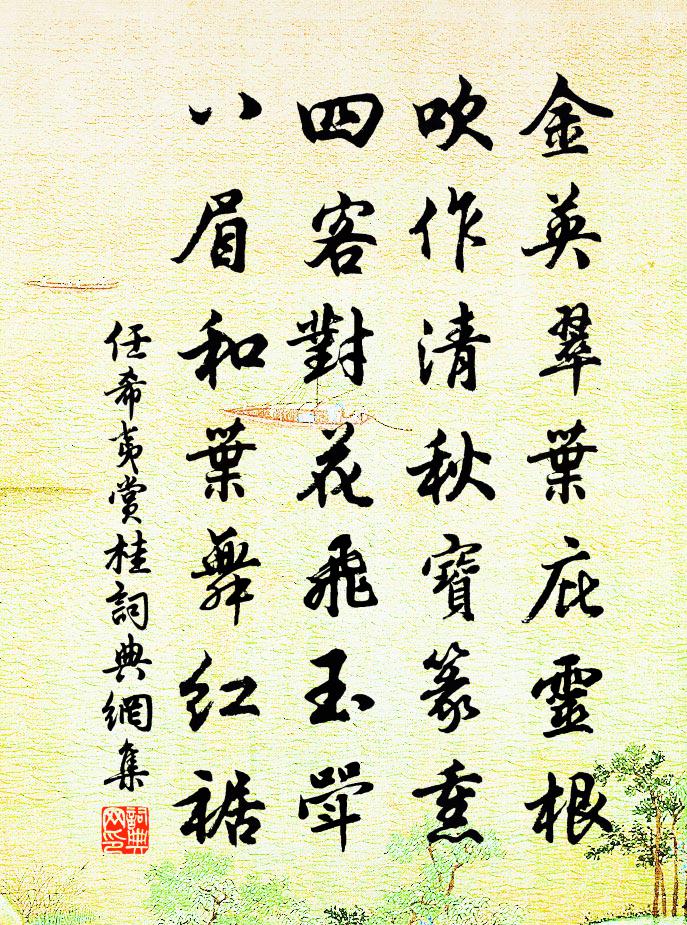 金英翠葉庇靈根
吹作清秋寶篆熏
四客對花飛玉斝
八眉和葉舞紅裾
任希夷賞桂詞典網集
詞典网印